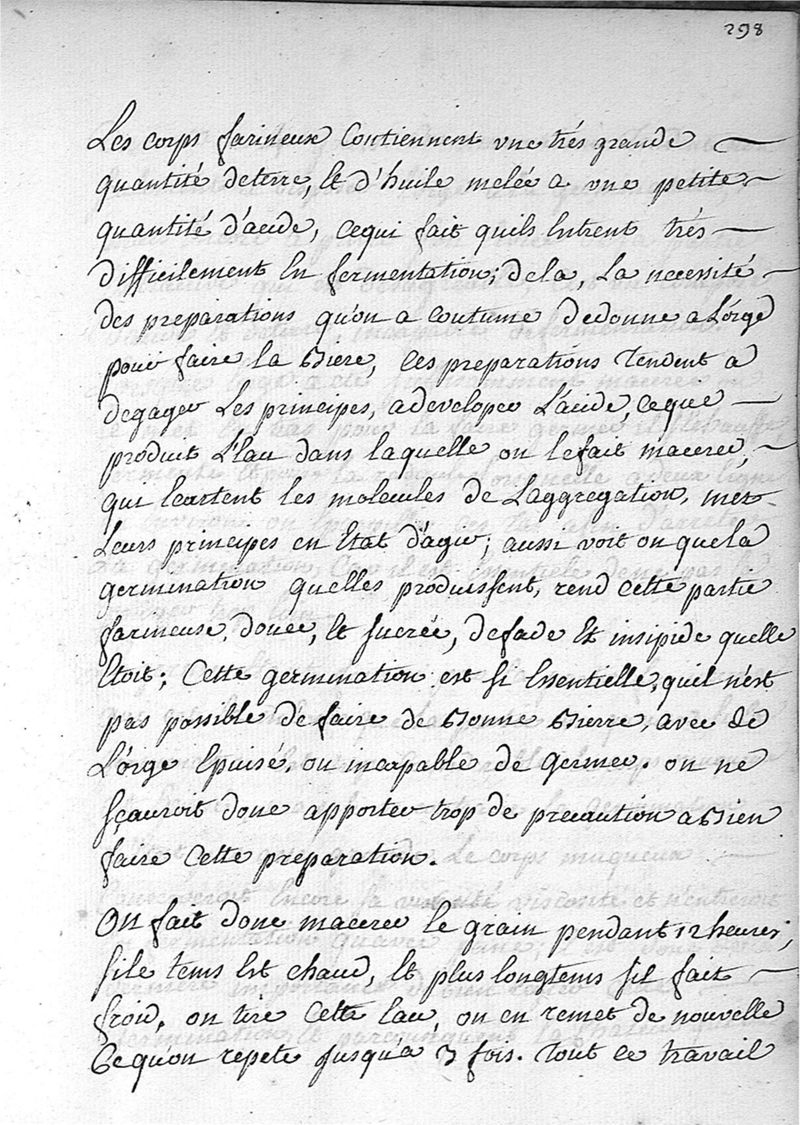 298
Les corps farineux Contiennent une trés grande
quantité deterre, et d'huile melée a une petite
quantité d'acide, cequi fait quils Entrent trés
difficilement En fermentation; dela, La necessité
des preparations qu'on a coutume dedonne a Lórge
pour faire la Biere, Ces preparations tendent a
degager Les principes, a developer L'acide, ceque
produit L'Eau dans laquelle on lefait macerer,
qui Ecartent les molecules de Laggregation, met
Leurs principes en Etat d'agir; aussi voit on quela
germination quelles produissent, rend cette partie
farineuse, douce, et sucrée, defade et insipide quelle
Etoit; Cette germination est si Essentielle, quil n'est
pas possible defaire de Bonne Bierre, avec de
L'órge Epuisé, ou incapable de germer. on ne
sçauroit donc apporter trop de precaution a Bien
faire Cette preparation.
On fait donc macerer le grain pendant 12 heures,
sile tems Est chaud, et plus longtems sil fait
froid, on tire Cette Eau, on en remet de nouvelle
Ce qu'on repete Jusqu'a 3 fois. tout ce travail